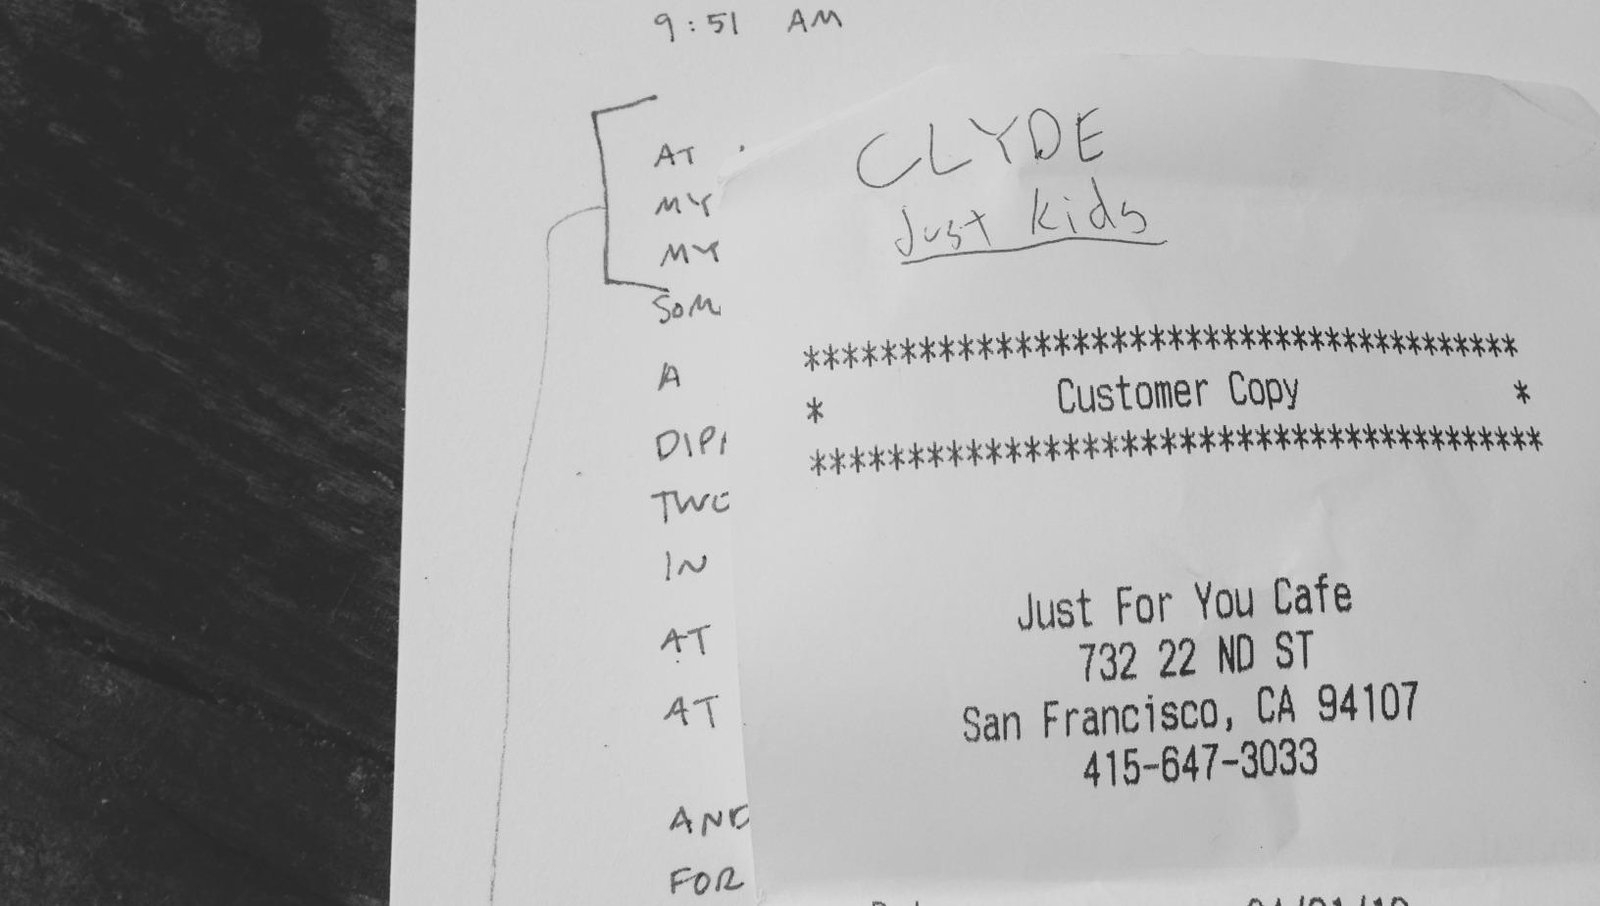 9:51 AM
AT
MY
MY
SOM
A
DIP
TWO
IN
AT
AT
AND
FOR
CLYDE
Just Kids
*************************************
* Customer Copy *
*************************************
Just For You Cafe
732 22 ND ST
San Francisco, CA 94107
415-647-3033